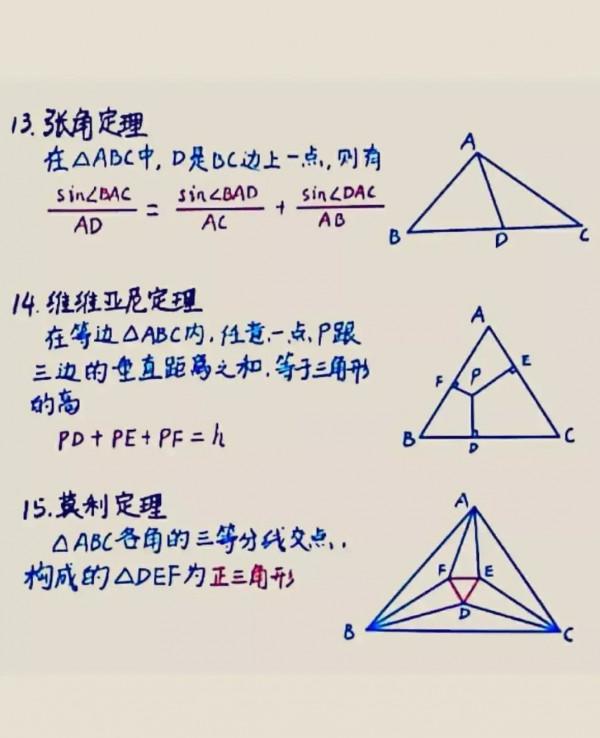 13. 张角定理
在△ABC中, D是BC边上一点, 则有
sin∠BAC/AD = sin∠BAD/AC + sin∠DAC/AB
A
B
D
C
14. 维维亚尼定理
在等边△ABC内, 任意一点, P跟
三边的垂直距离之和, 等于三角形
的高
PD + PE + PF = h
A
F
P
E
B
D
C
15. 莫利定理
△ABC各角的三等分线交点,
构成的△DEF为正三角形
A
F
E
D
B
C